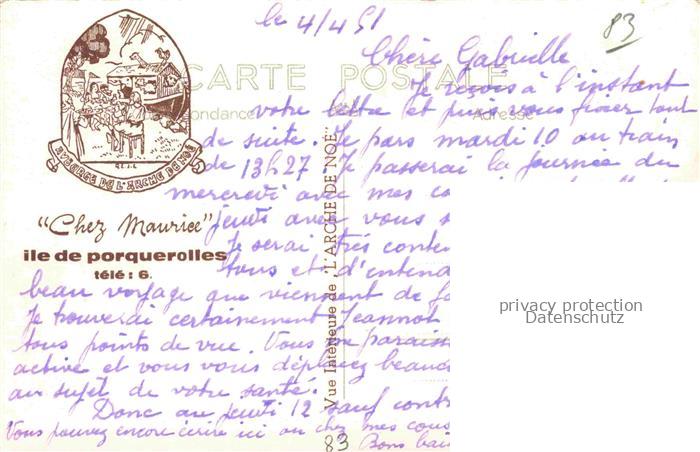 le 4/4/51
83
Chère Gabrielle
CARTE POSTALE
Je reçois à l'instant
Correspondance
Adresse
votre lettre et puis vous fixer tout
de suite. Je pars mardi 10 au train
de 13h27 Je passerai la journée du
mercredi avec mes
AUBERGE DE L'ARCHE DE NOÉ
jeudi avec vous
"Chez Maurice"
Je serai très conten
ile de porquerolles
télé : 6.
tous et d'entend
beau voyage que viennent de
Je trouverai certainement Jeannot
tous points de vue. Vous me paraiss
active et vous vous déplacez beauc
au sujet de votre santé.
Donc au jeudi 12 sauf contr
Vous pouvez encore écrire ici ou chez mes cous
Bons bai
83
Vue Intérieure de "L'ARCHE DE NOË"
privacy protection
Datenschutz